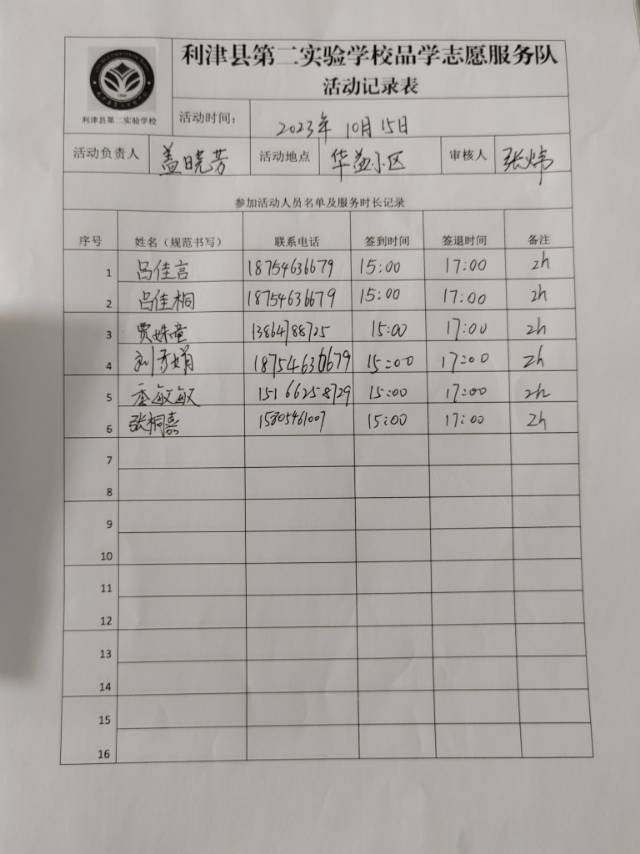 利津县第二实验学校品学志愿服务队
活动记录表
利津县第二实验学校
活动时间： 2023年10月15日
活动负责人 盖晓芳 活动地点 华益小区 审核人 张炜
参加活动人员名单及服务时长记录
序号 姓名（规范书写） 联系电话 签到时间 签退时间 备注
1 吕佳言 18754636679 15:00 17:00 2h
2 吕佳桐 18754636679 15:00 17:00 2h
3 贾姝童 13864788725 15:00 17:00 2h
4 18754636679 15:00 17:00 2h
5 15166258729 15:00 17:00 2h
6 张桐嘉 15805461007 15:00 17:00 2h
7
8
9
10
11
12
13
14
15
16